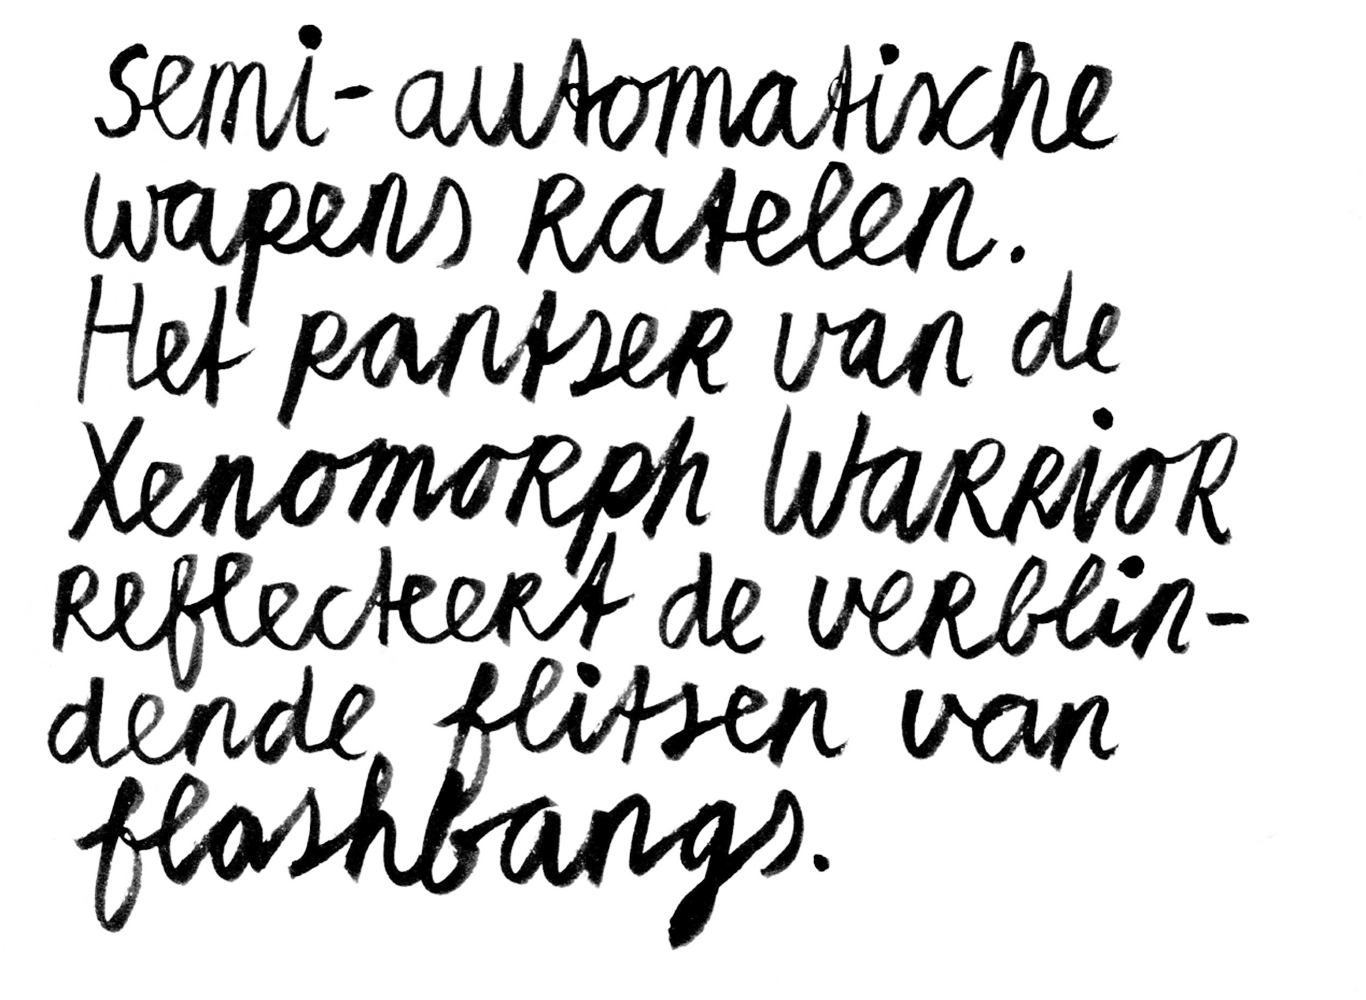 semi-automatische
wapens ratelen.
Het pantser van de
Xenomorph Warrior
reflecteert de verblin-
dende flitsen van
flashbangs.